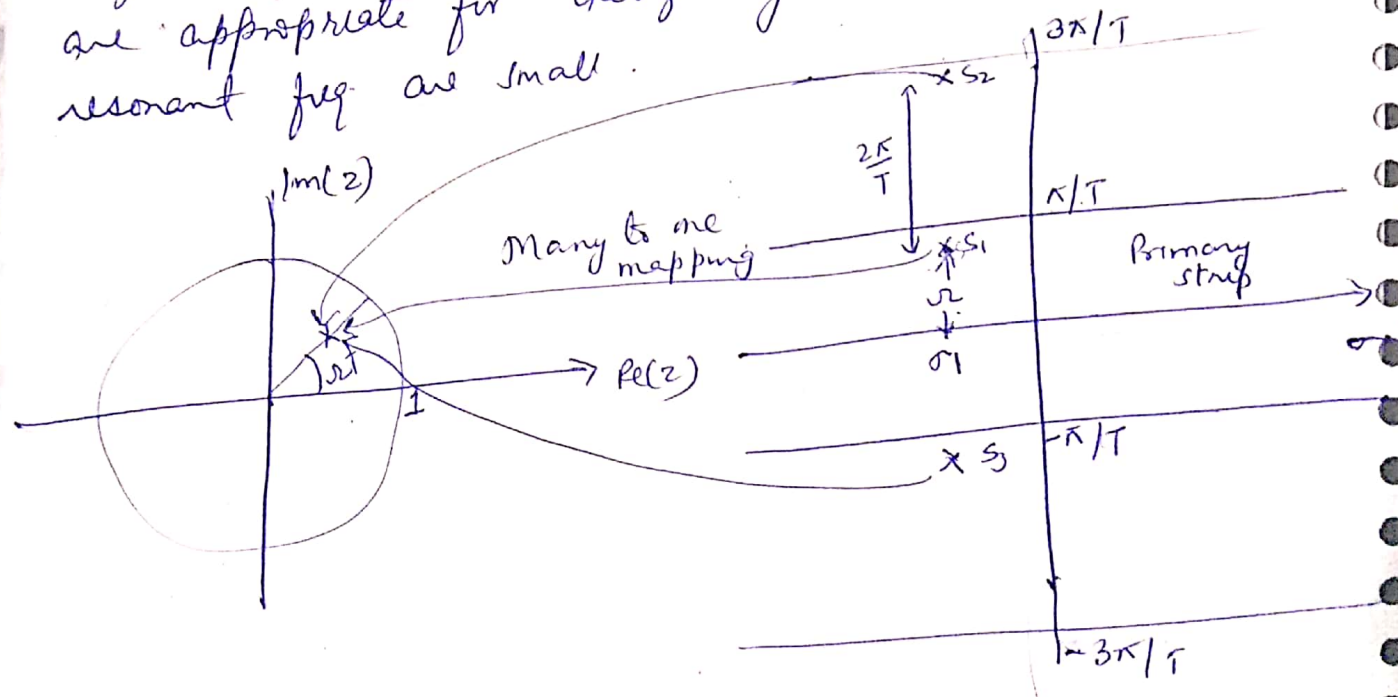 are appropriate for
resonant freq. are small.
3π/T
× S2
Im(z)
2π/T
π/T
Many to one
mapping
× S1
Primary
strip
Ω
σ1
ΩT
Re(z)
1
σ
-π/T
× S3
-3π/T